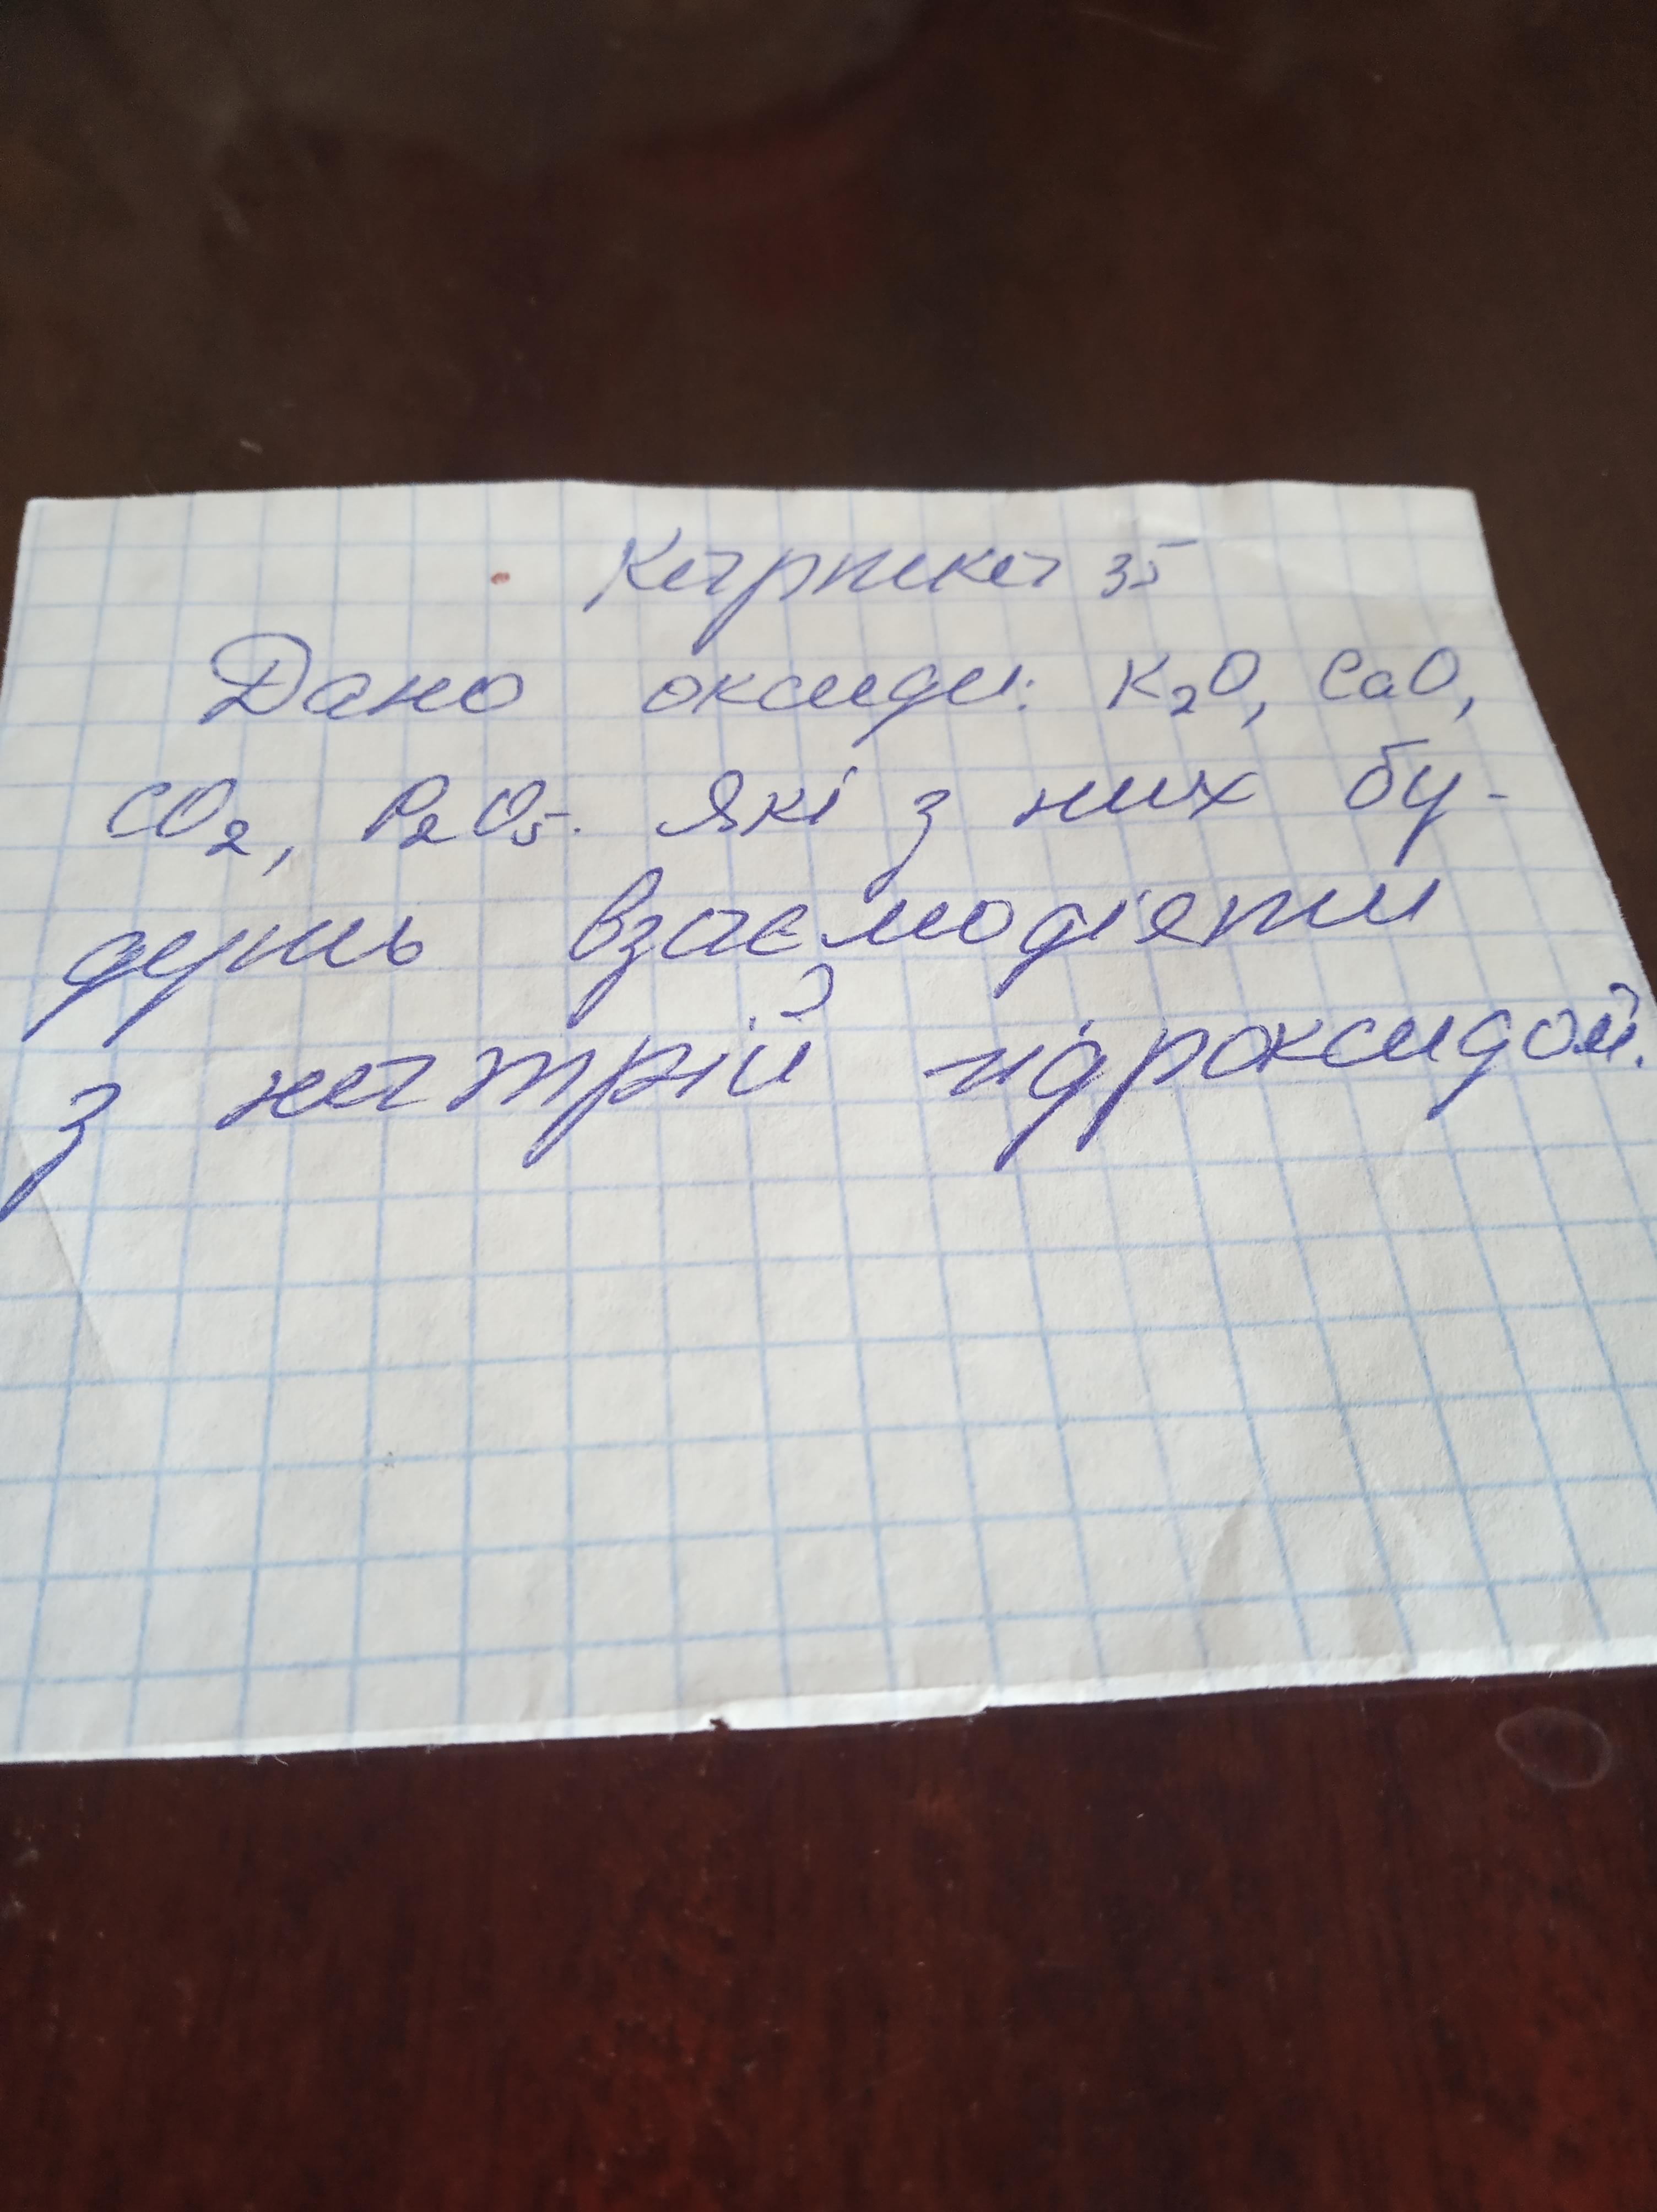 Картка 35
Дано оксиди: K₂O, CaO,
CO₂, P₂O₅. Які з них бу-
дуть взаємодіяти
з натрій гідроксидом.